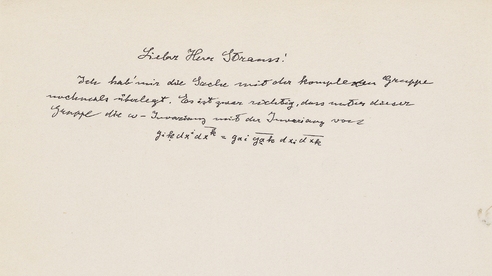 Lieber Herr Strauss!
Ich hab' mir die Sache mit der komplexen Gruppe
nochmals überlegt. Es ist zwar richtig, dass unter dieser
Gruppe die w-Invarianz mit der Invarianz von